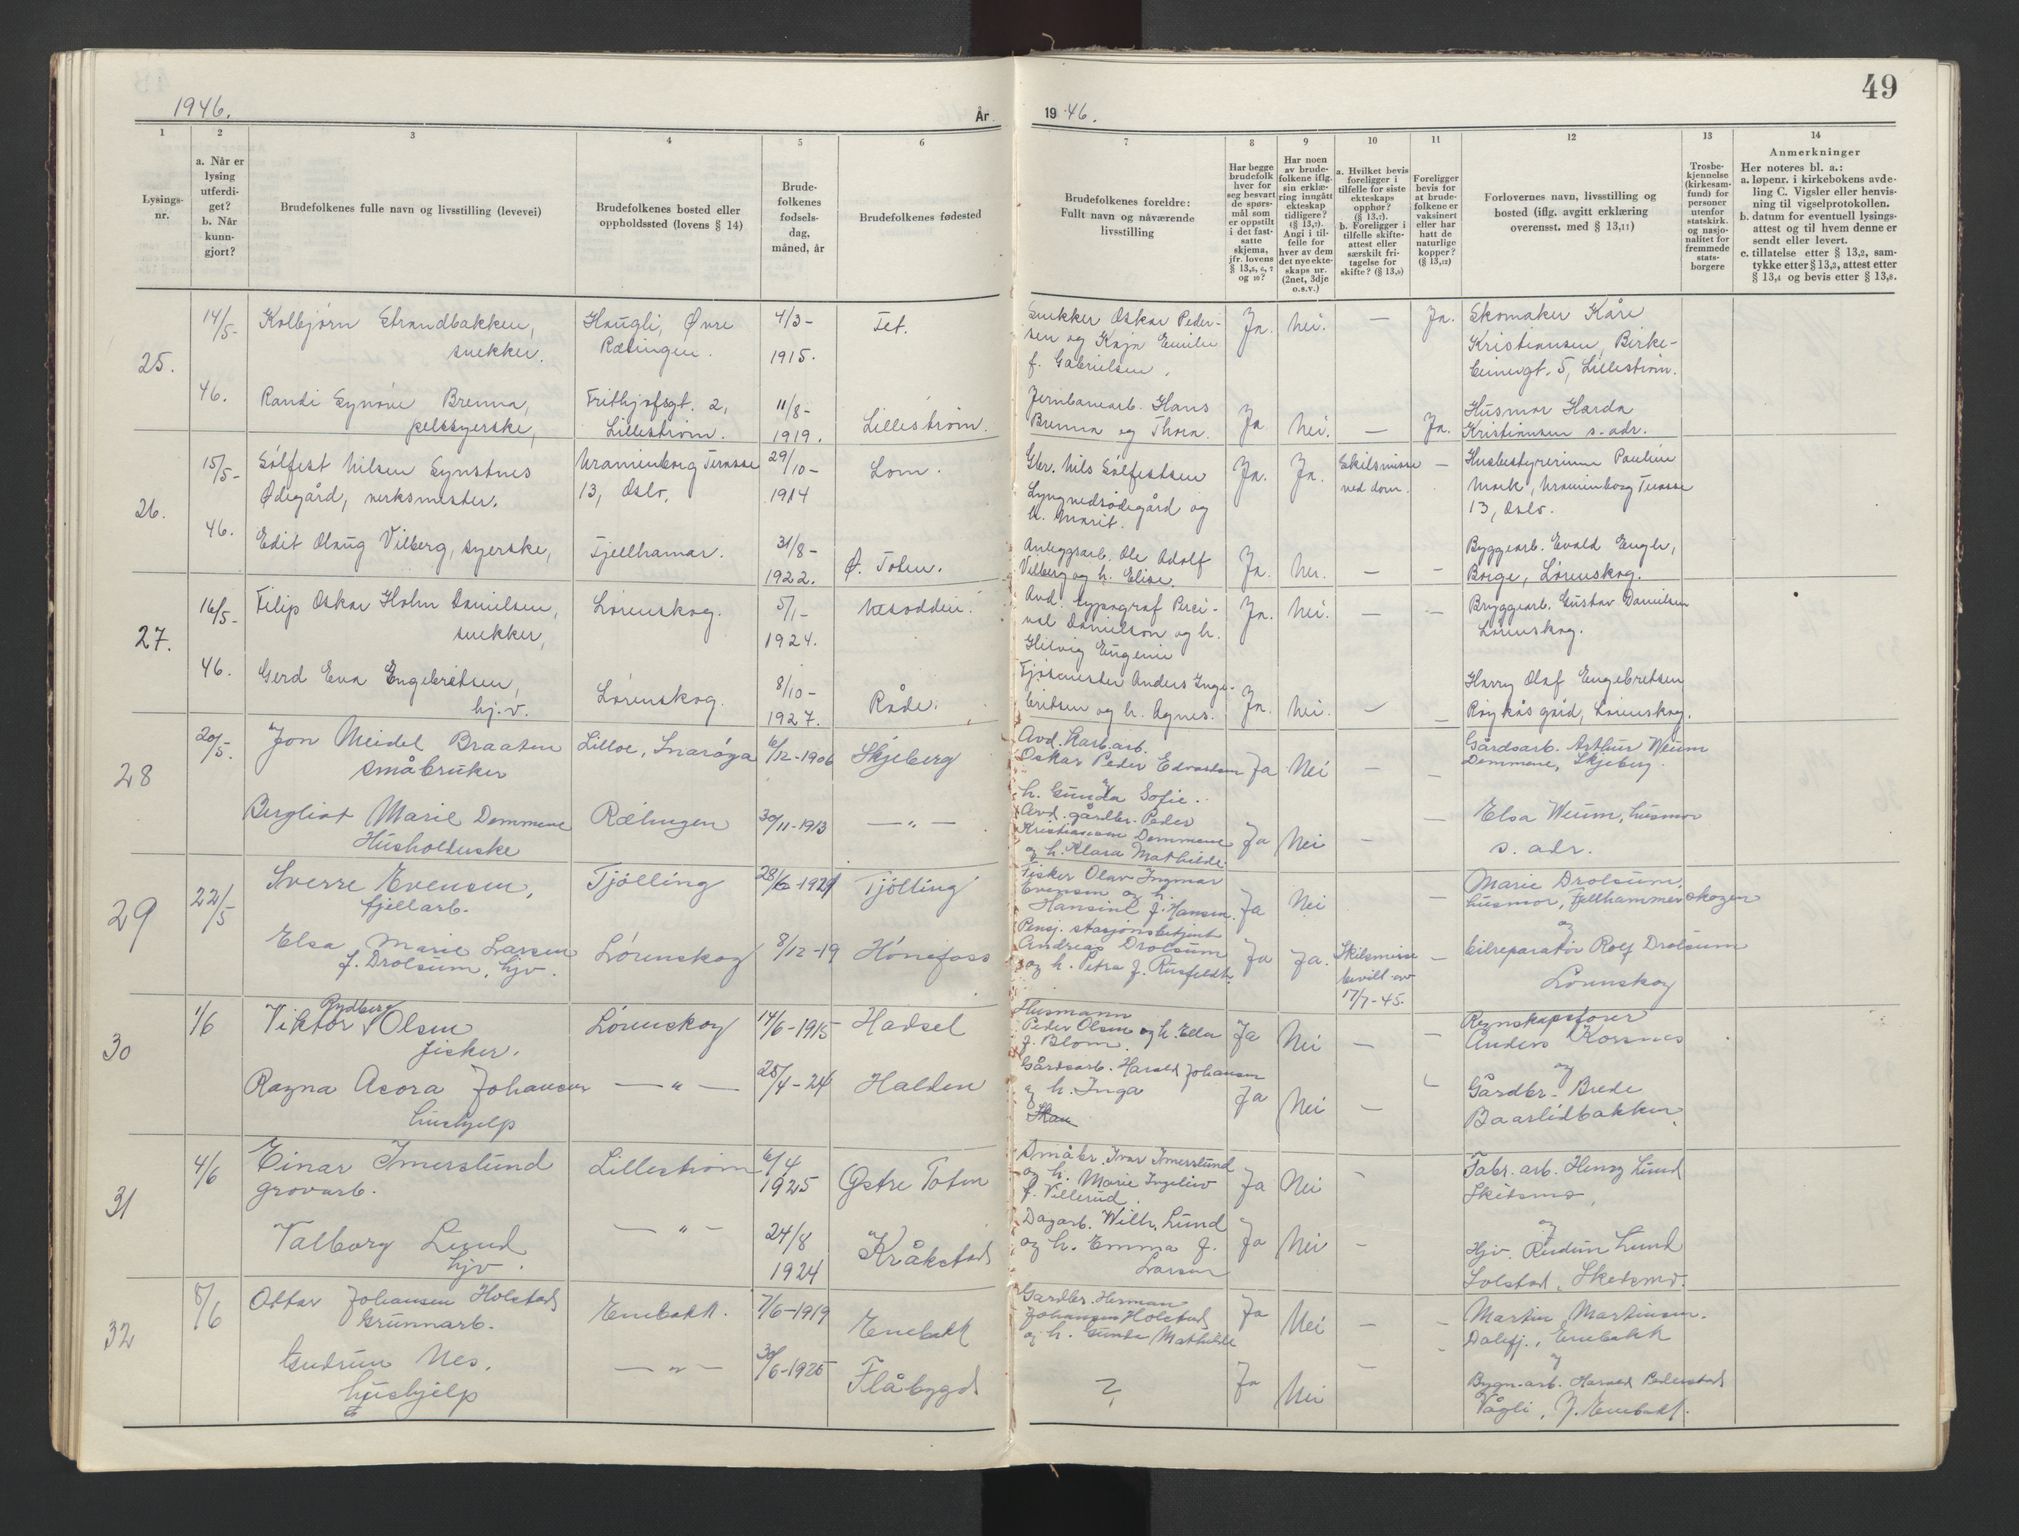 1946.
År
1
2
3
4
5
6
Lysings-
nr.
a. Når er
lysing
utferdi-
get?
b. Når
kunn-
gjort?
Brudefolkenes fulle navn og livsstilling (levevei)
Brudefolkenes bosted eller
oppholdssted (lovens § 14)
Brude-
folkenes
fødsels-
dag,
måned, år
Brudefolkenes fødested
25.
14/5-
46.
Kolbjørn Strandbakken,
snekker.
Haugli, Øvre
Rælingen.
4/3-
1915.
Fet.
Randi Synøve Brenna,
pelssyerske,
Frithjofsgt. 2,
Lillestrøm.
11/8-
1919.
Lillestrøm.
26.
15/5-
46.
Sølfest Nilsen Synstnes
Ødegård, verksmester.
Uranienborg Terasse
13, Oslo,
29/10-
1914
Lom.
Edit Olaug Vilberg, syerske,
Fjellhamar.
31/8-
1922.
Ø. Toten.
27.
16/5-
46.
Filip Oskar Holm Danielsen,
snekker,
Lørenskog.
5/1-
1924.
Nesodden.
Gerd Eva Engebretsen,
hj.v.
Lørenskog.
8/10-
1927.
Råde.
28
20/5.
Jon Meidel Braaten
småbruker
Lilloe, Snarøya
6/12-1906
Skjeberg
Bergliot Marie Demmene
Husholderske
Rælingen
30/11-1913
—"—
29
22/5
Sverre Evensen,
fjellarb.
Tjølling
28/2-1921
Tjølling
Elsa Marie Larsen
f. Drolsum, hjv.
Lørenskog
8/12-19
Hønefoss
30
1/6
Rydberg
Viktor Olsen
fisker.
Lørenskog
14/6-1915
Hadsel
Ragna Acora Johansen
hushjelp
—"—
25/4-24
Halden
31
4/6
Einar Imerslund
grovarb.
Lillestrøm
6/4
1925
Østre Toten
Valborg Lund
hjv.
—"—
24/8
1924
Kråkstad
32
8/6
Ottar Johansen Holstad
Grunnarb.
Enebakk.
7/6-1919
Enebakk
Gudrun Nes.
hushjelp
—"—
30/6-1925
Flåbygd
49
1946.
7
8
9
10
11
12
13
14
Brudefolkenes foreldre:
Fullt navn og nåværende
livsstilling
Har begge
brudefolk
hver for
seg besvart
de spørs-
mål som
er oppstilt
i det fast-
satte
skjema,
jfr. lovens
§ 13,5, 6, 7
og 10?
Har noen
av brude-
folkene iflg.
sin erklæ-
ring inngått
ekteskap
tidligere?
(§ 13,7).
Angi i til-
felle for
hver av dem
det nye ekte-
skaps nr.
(2net, 3dje
o.s.v.)
a. Hvilket bevis
foreligger i
tilfelle for siste
ekteskaps
opphør?
(§ 13,7).
b. Foreligger i
tilfelle skifte-
attest eller
særskilt fri-
tagelse for
skifte? (§ 13,9)
Foreligger
bevis for
at brude-
folkene er
vaksinert
eller har
hatt de
naturlige
kopper?
(§ 13,12)
Forlovernes navn, livsstilling og
bosted (iflg. avgitt erklæring
overensst. med § 13,11)
Trosbe-
kjennelse
(kirkesam-
funn) for
personer
utenfor
statskirk.
og nasjo-
nalitet for
fremmede
stats-
borgere
Anmerkninger
Her noteres bl. a.:
a. løpenr. i kirkebokens avde-
ling C. Vigsler eller henvis-
ning til vigselprotokollen.
b. datum for eventuell lysings-
attest og til hvem denne er
sendt eller levert.
c. tillatelse etter § 13,2, sam-
tykke etter § 13,3, attest etter
§ 13,4 og bevis etter § 13,8.
Snekker Oskar Peder-
sen og Kaja Emilie
f. Gabrielsen.
Ja.
Nei.
—
Ja.
Skomaker Kåre
Kristiansen, Birke-
beinergt. 5, Lillestrøm.
Jernbanearb. Hans
Brenna og Thora.
Ja
Nei.
—
Ja.
Husmor Harda
Kristiansen s. adr.
Gbr. Nils Sølfestsen
Lyngvedsødegård og
h. Marit.
Ja.
Ja.
Skilsmisse
ved dom.
—
Husbestyrerinne Pauline
Mork, Uranienborg Terasse
13, Oslo.
Anleggsarb. Ole Adolf
Vilberg og h. Elise.
Ja.
Nei.
—
—
Byggearb. Evald Engh,
Borge, Lørenskog.
Avd. typograf Perci-
val Danielson og h.
Hilvig Eugenie
Ja.
Nei.
—
—
Bryggearb. Gustav Danielsen
Lørenskog.
Fjøsmester Anders Enge-
bretsen og h. Agnes.
Ja.
Nei.
—
—
Harry Olaf Engebretsen
Røykås gård, Lørenskog.
Avd. karb.arb.
Oskar Peder Edvardsen
h. Gunda Sofie.
Ja
Nei
—
—
Gårdsarb. Arthur Weum
Demmene, Skjeberg.
Avd. gårdbr. Peder
Kristiansen Demmene
og h. Klara Mathilde.
Ja
Nei
—
—
Elsa Weum, husmor
s. adr.
Fisker Olav Ingmar
Evensen og h.
Hansine f. Hansen.
Ja
Nei
—
Marie Drolsum,
husmor, Fjellhammerskogen
og
Pensj. stasjonsbetjent
Andreas Drolsum
og h. Petra f. Rusfeldt
Ja
Ja.
Skilsmisse
bevill. av
17/7-45.
—
bilreparatør Rolf Drolsum
Lørenskog
Husmann
Peder Olsen og h. Ella
f. Blom.
Ja
Nei
—
—
Regnskapsfører
Anders Korsnes
og
Gårdsarb. Harald Johansen
og h. Inga
Skau
Ja
Nei
—
Gårdbr. Brede
Baarlidbakken.
Småbr. Ivar Imerslund
og h. Marie Ingeliev
f. Villerud.
Ja
Nei
—
Fabr. arb. Henry Lund
Skedsmo,
og
Dagarb. Wilh. Lund
og h. Emma f.
Larsen
Ja
Nei
—
Hjv. Reidun Lund
Solstad, Skedsmo.
Gårdbr. Herman
Johansen Holstad
og h. Gunda Mathilde
Ja
Nei
—
—
Martin Martinsen.
Dalefj., Enebakk
og
?
Ja
Nei
—
Bygn.arb. Harald Pederstad
Vågli, Y. Enebakk.